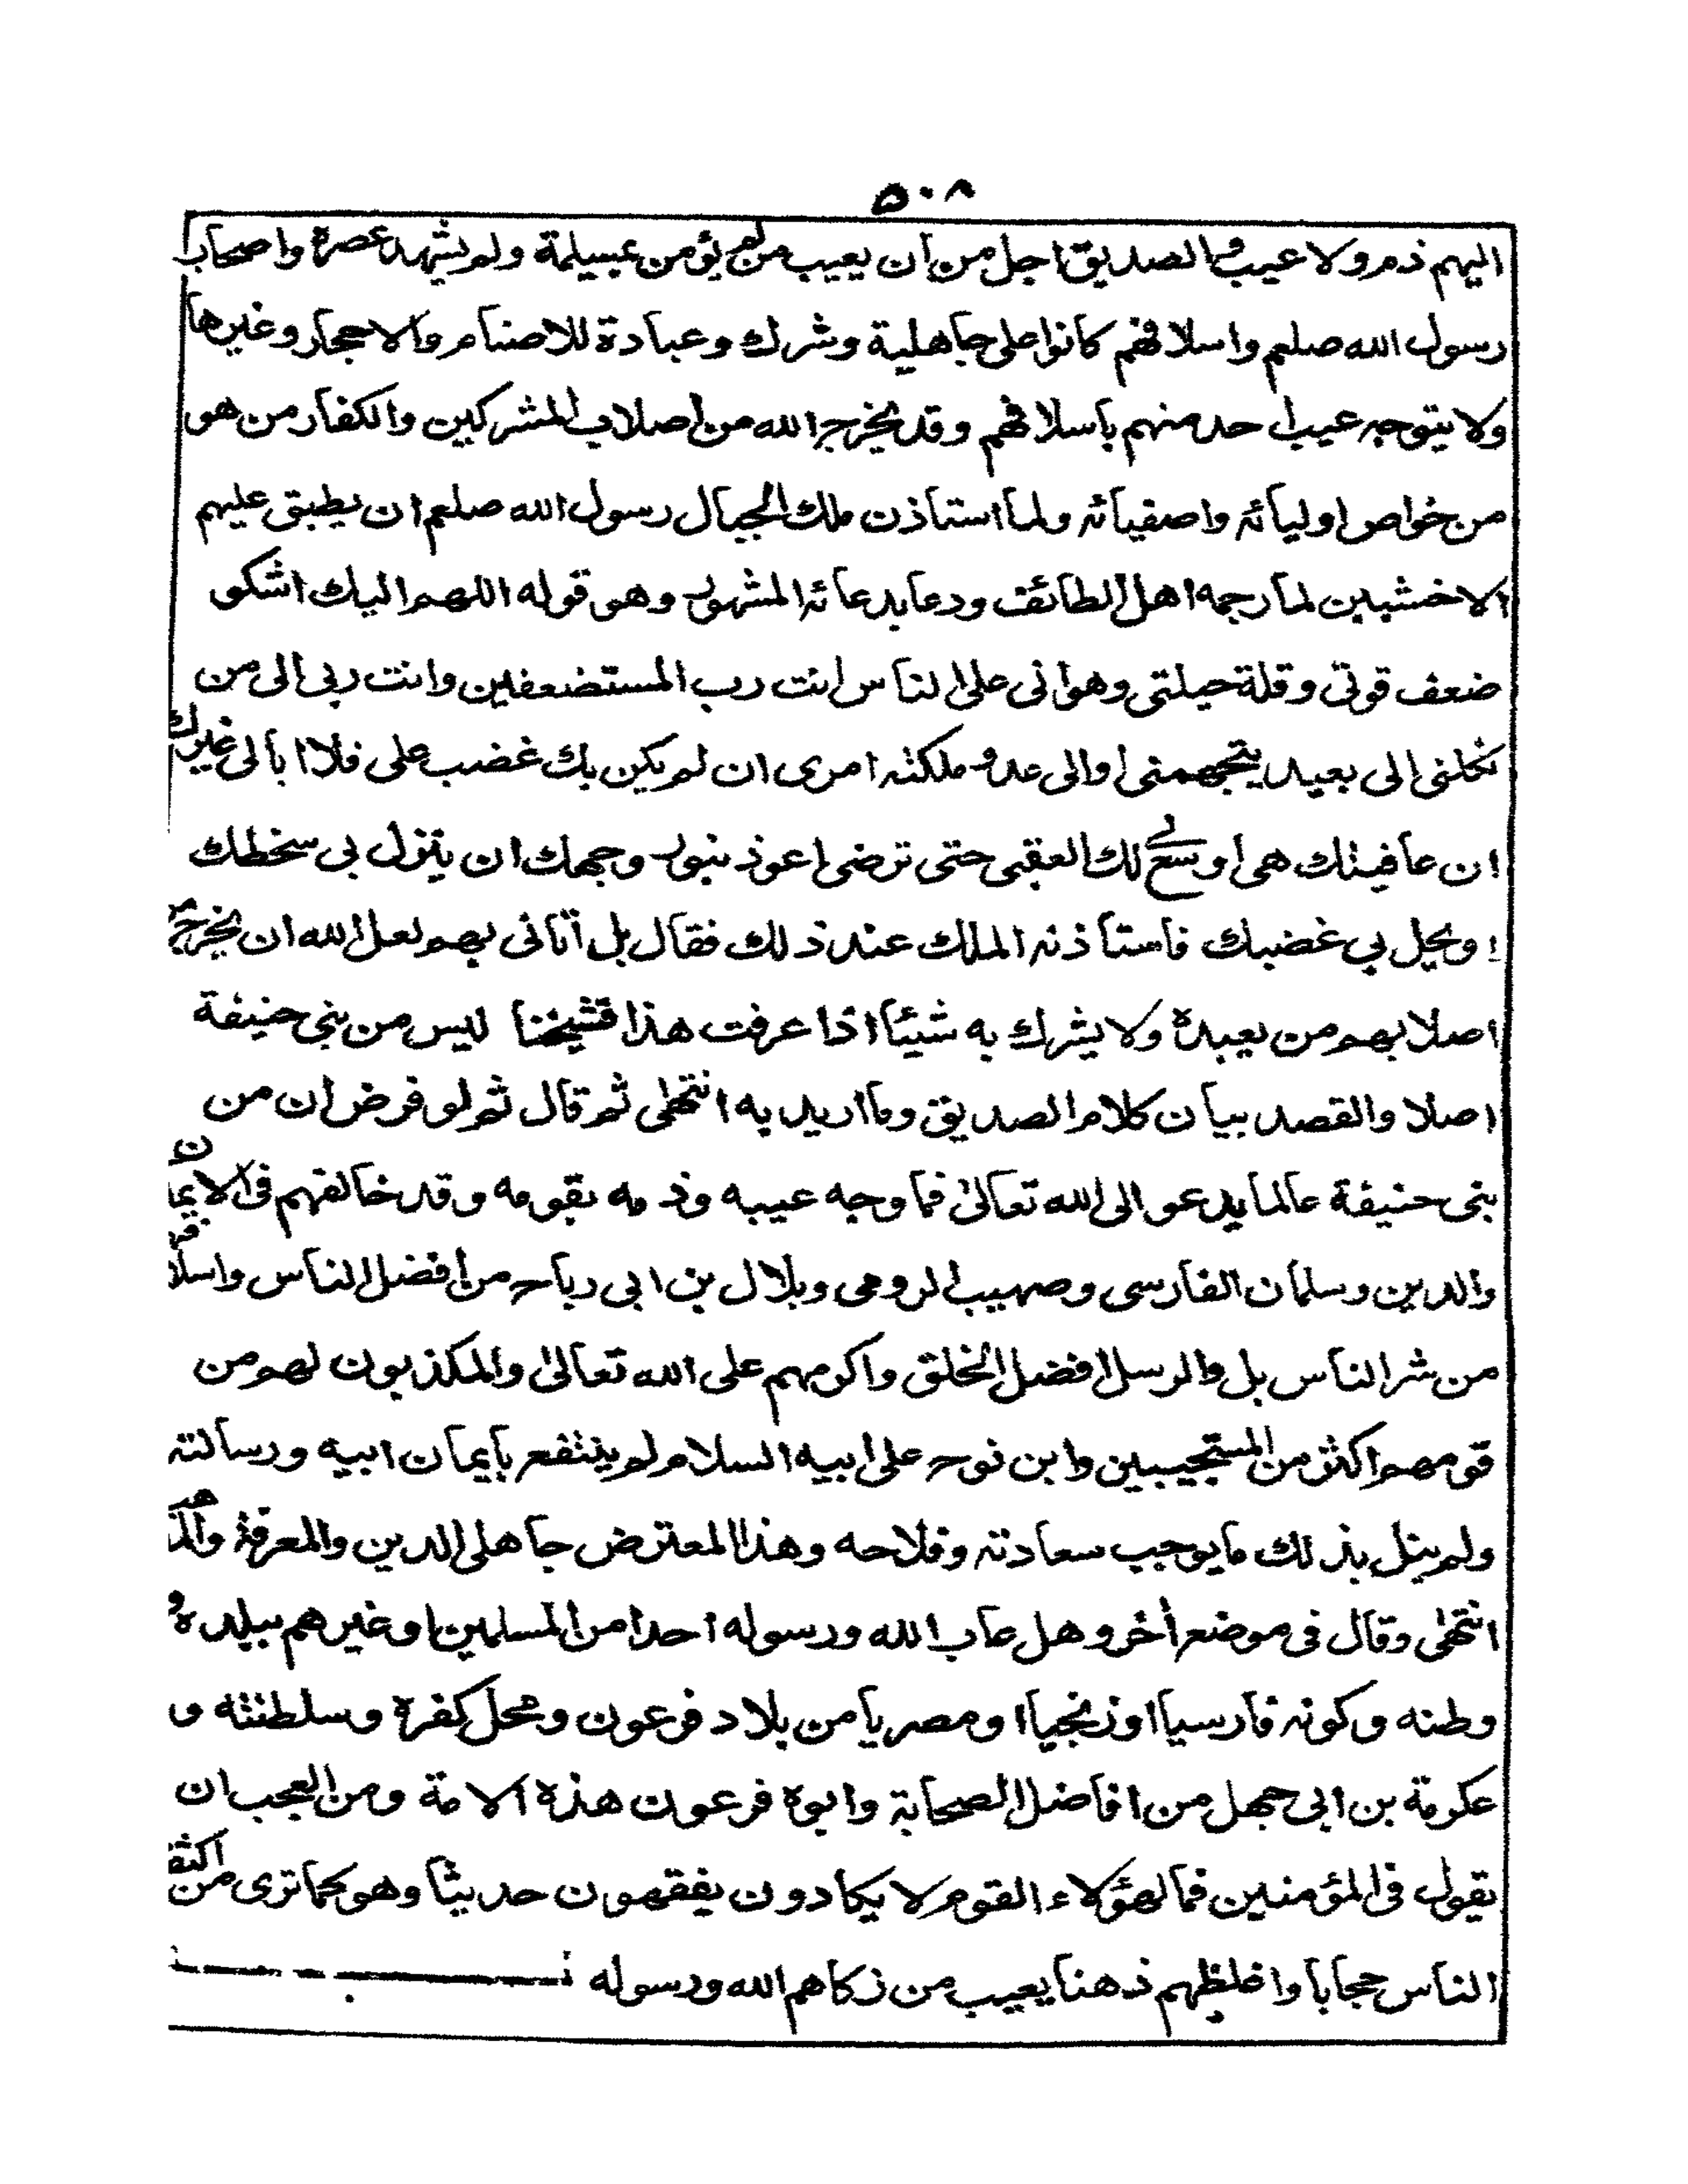 ٥٠٨
اليهم ذم ولا عيب والصديق اجل من ان يعيب من لم يؤمن بمسيلمة ولم يشهد عصره واصحاب
رسول الله صلعم واسلافهم كانوا على جاهلية وشرك وعبادة للاصنام والاحجار وغيرها
ولا يتوجه عيب احد منهم باسلافهم وقد يخرج الله من اصلاب المشركين والكفار من هو
من خواص اوليائه واصفيائه ولما استاذن ملك الجبال رسول الله صلعم ان يطبق عليهم
الاخشبين لما رجمه اهل الطائف ودعا بدعائه المشهور وهو قوله اللهم اليك اشكو
ضعف قوتى وقلة حيلتى وهوانى على الناس انت رب المستضعفين وانت ربى الى من
تكلنى الى بعيد يتجهمنى او الى عدو ملكته امرى ان لم يكن بك غضب على فلا ابالى غير
ان عافيتك هى اوسع لى لك العقبى حتى ترضى اعوذ بنور وجهك ان ينزل بى سخطك
او يحل بى غضبك فاستأذنه الملك عند ذلك فقال بل أتانى بهم لعل الله ان يخرج من
اصلابهم من يعبده ولا يشرك به شيئا اذا عرفت هذا فشيخنا ليس من بنى حنيفة
اصلا والقصد بيان كلام الصديق وما اريد به انتهى ثم قال ثم لو فرض ان من
بنى حنيفة عالما يدعو الى الله تعالى فما وجه عيبه وذمه بقومه وقد خالفهم فى الايمان
والدين وسلمان الفارسى وصهيب الرومى وبلال بن ابى رباح من افضل الناس واسلافهم
من شر الناس بل والرسل افضل الخلق واكرمهم على الله تعالى والمكذبون لهم من
قومهم اكثر من المستجيبين وابن نوح على ابيه السلام لم ينتفع بايمان ابيه ورسالته
ولم ينل بذلك ما يوجب سعادته وفلاحه وهذا المعترض جاهلى الدين والمعرفة والمذهب
انتهى وقال فى موضع أخر وهل عاب الله ورسوله احدا من المسلمين او غيرهم ببلده و
وطنه وكونه فارسيا او زنجيا او مصريا من بلاد فرعون ومحل كفره وسلطنته و
عكرمة بن ابى جهل من افاضل الصحابة وابوه فرعون هذه الامة ومن العجب ان
يقول فى المؤمنين فما لهؤلاء القوم لا يكادون يفقهون حديثا وهو كما ترى من اكثف
الناس حجابا واغلظهم ذهنا يعيب من زكاهم الله ورسوله